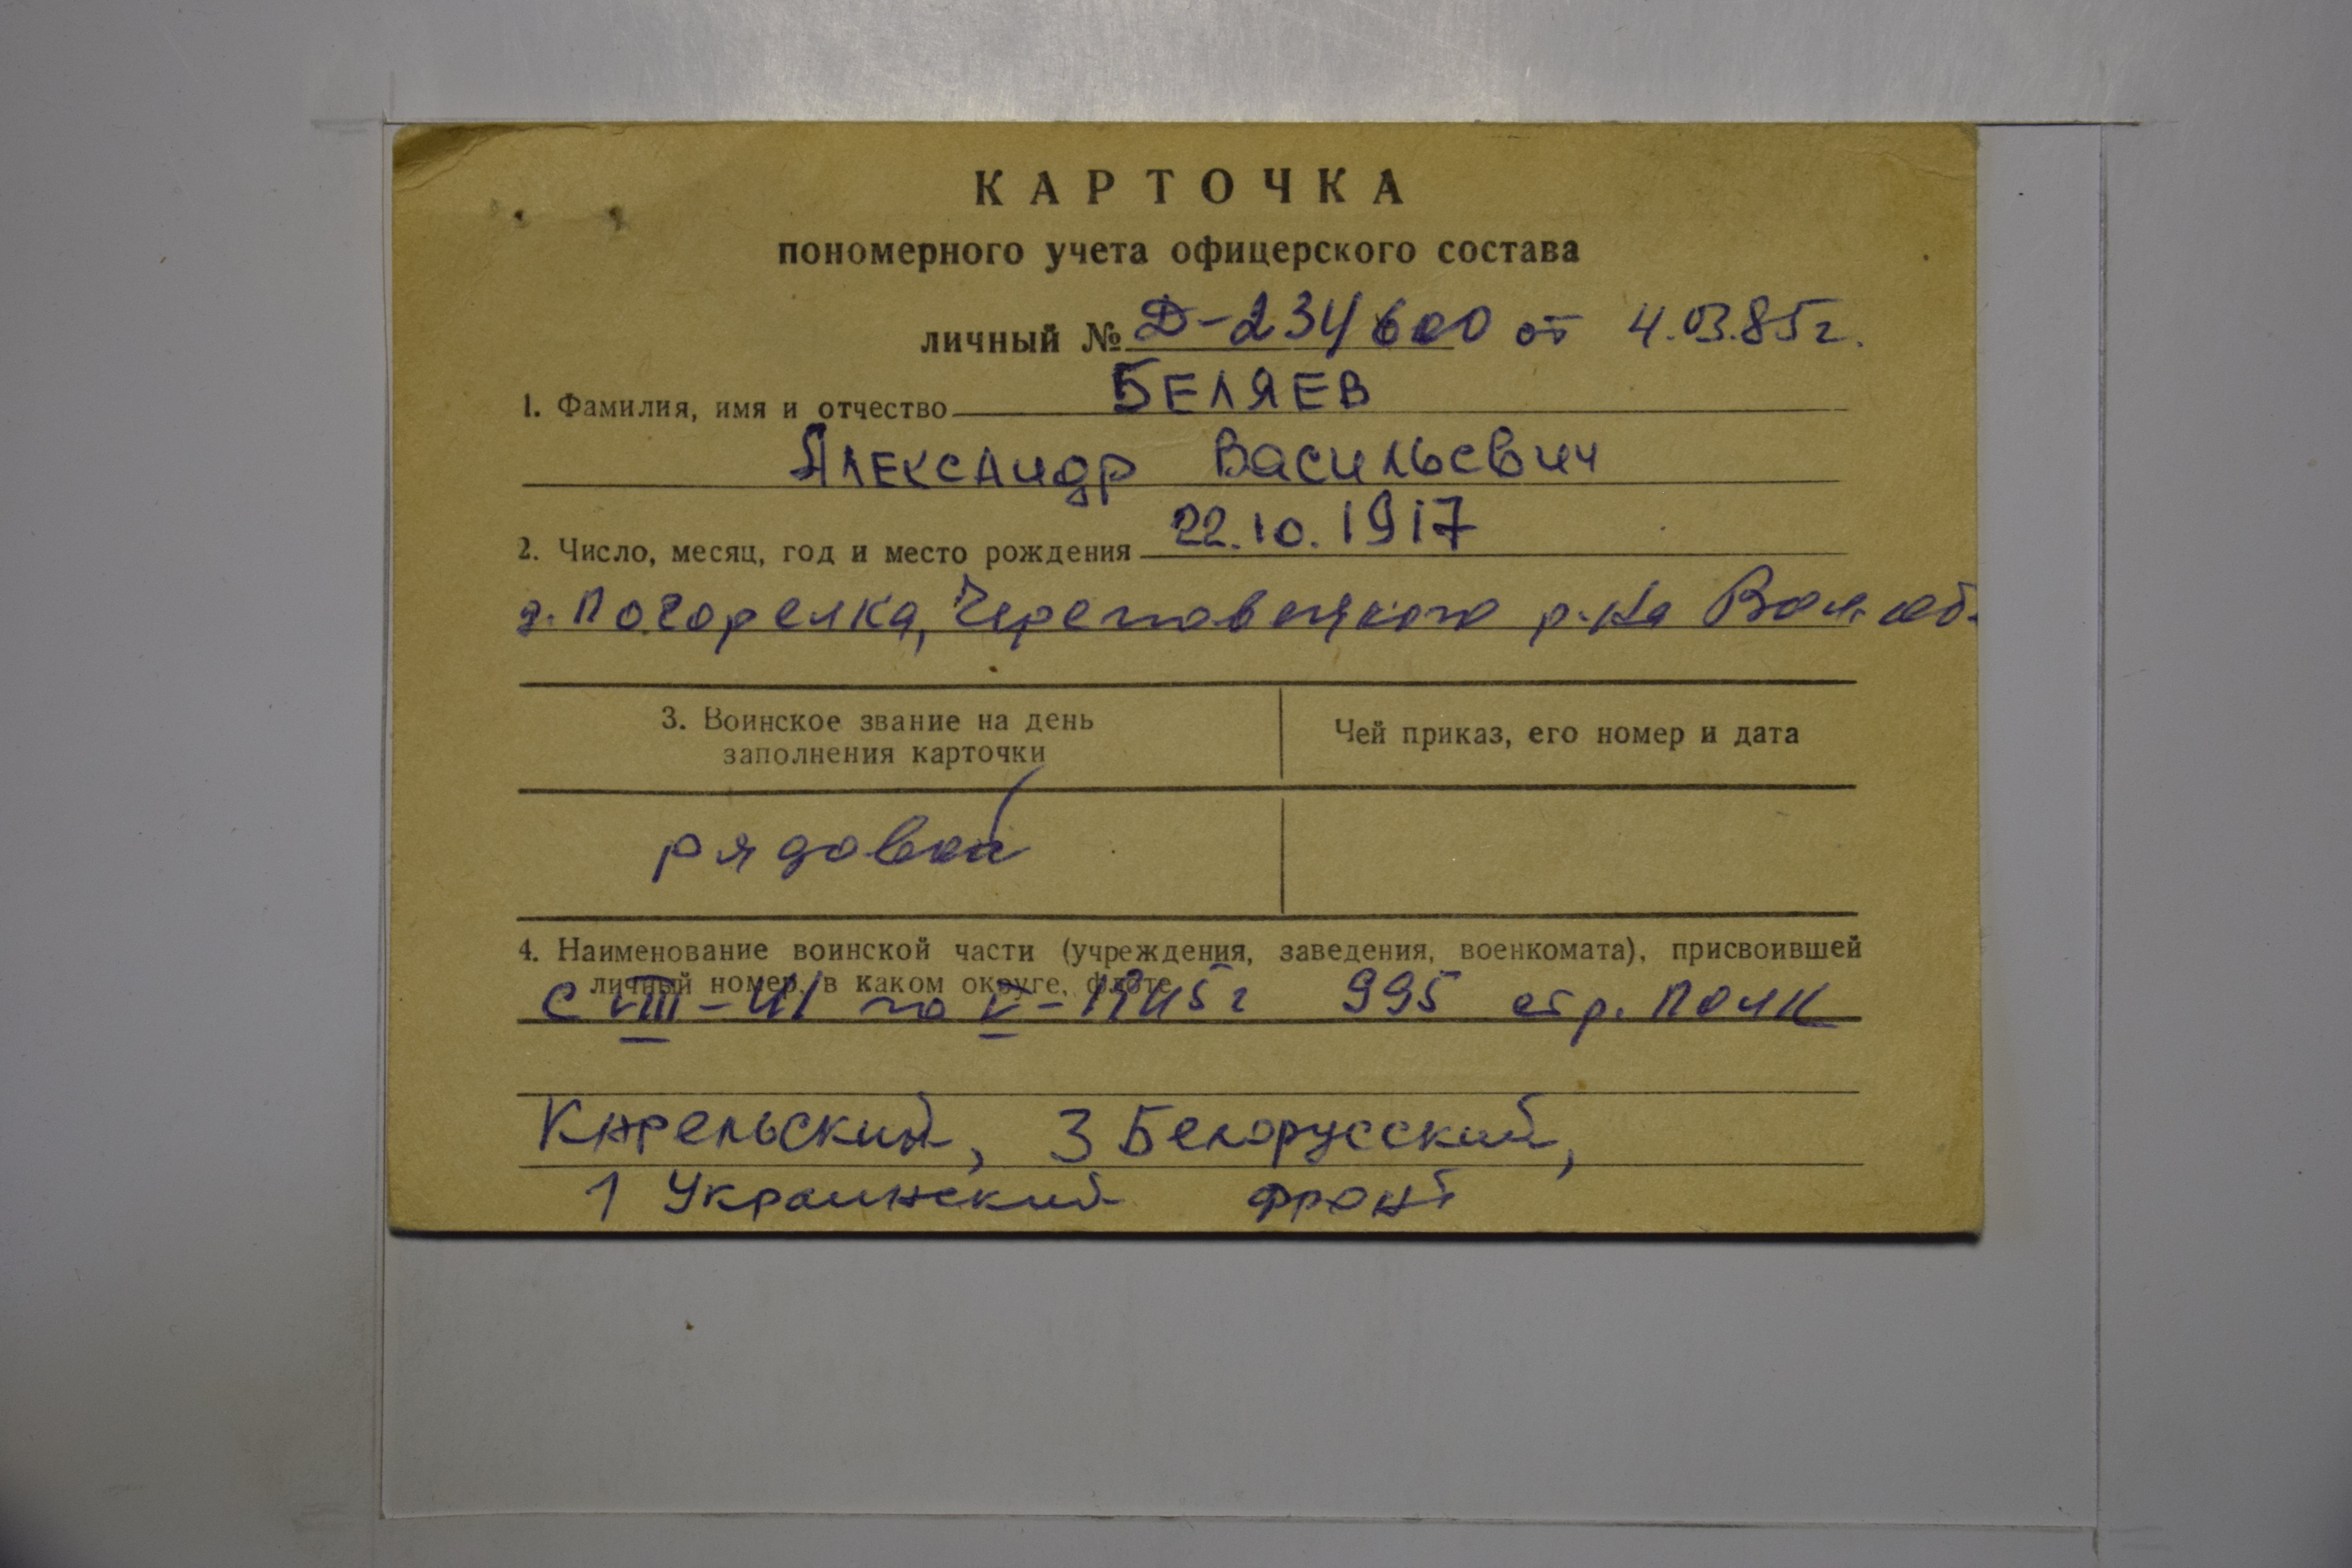 КАРТОЧКА
пономерного учета офицерского состава
личный № Д-234600 от 4.03.85г.
1. Фамилия, имя и отчество БЕЛЯЕВ
Александр Васильевич
2. Число, месяц, год и место рождения 22.10.1917
д. Погорелка, Череповецкого р-на Вол. об.
3. Воинское звание на день
заполнения карточки
Чей приказ, его номер и дата
рядовой
4. Наименование воинской части (учреждения, заведения, военкомата), присвоившей
личный номер, в каком округе, флоте
с VIII-41 по V-1945г 995 стр. полк
Карельский, 3 Белорусский,
1 Украинский фронт